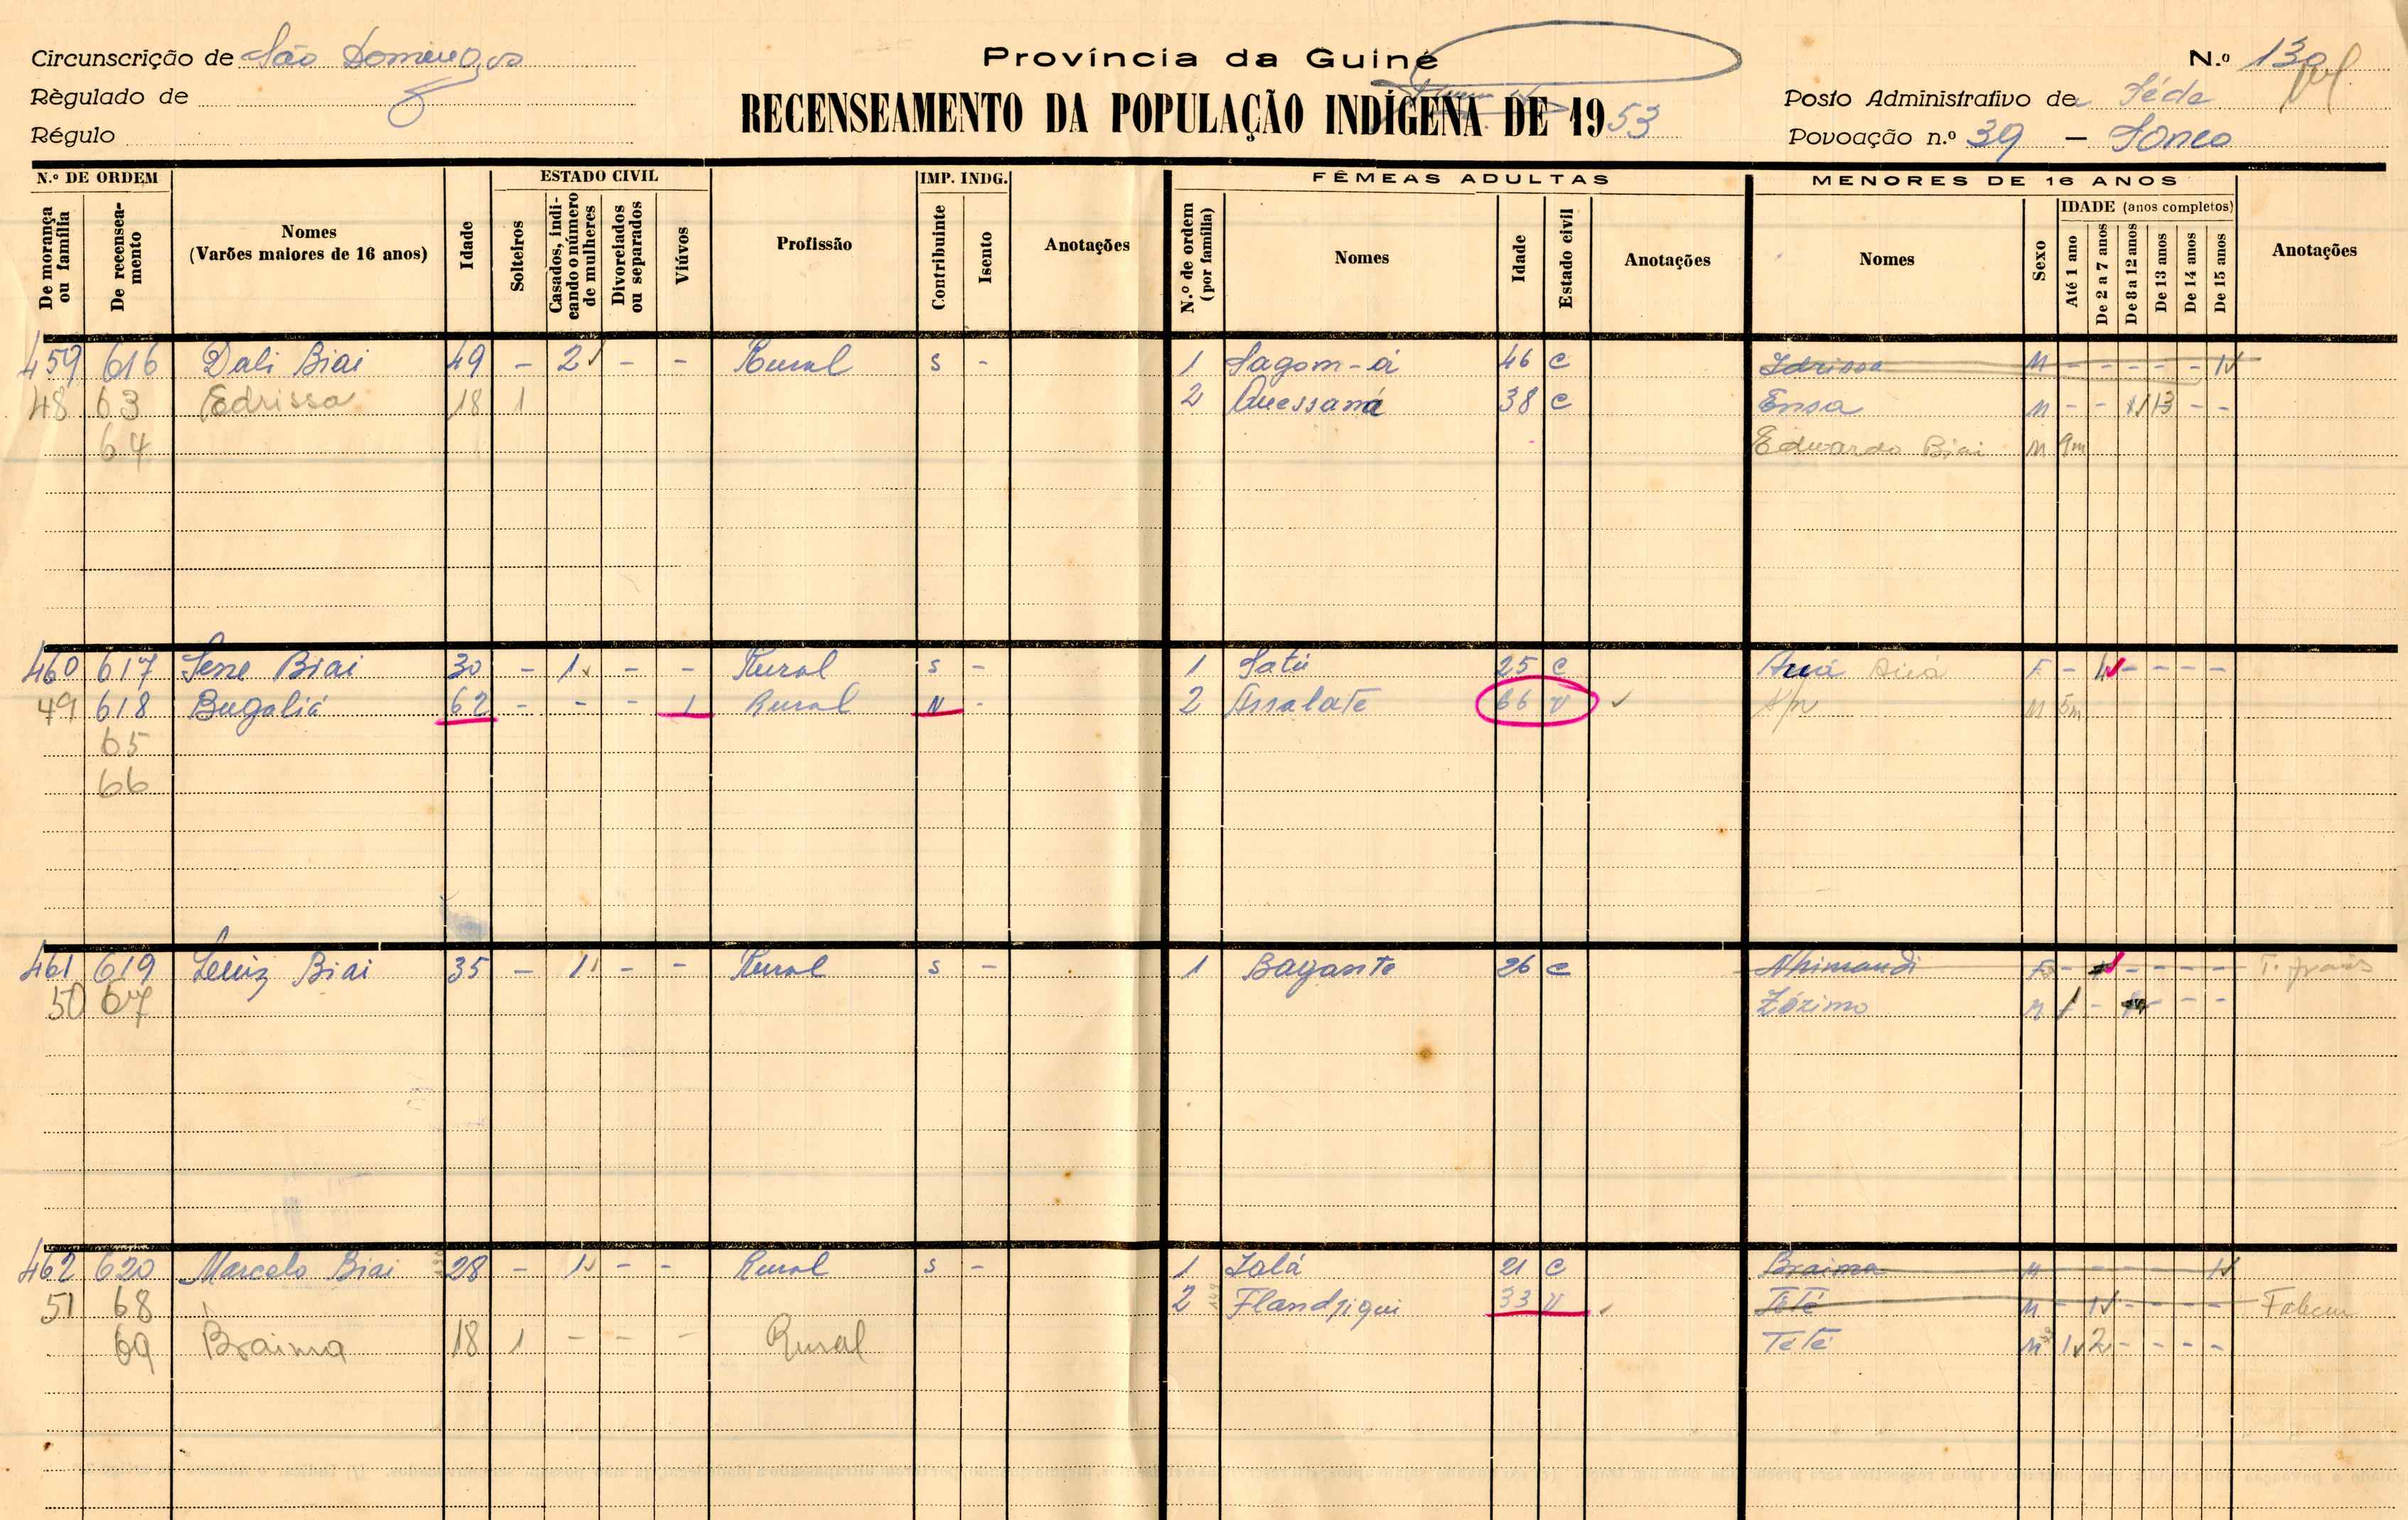 Circunscrição de São Domingos
Província da Guiné
N.º 130
Règulado de
RECENSEAMENTO DA POPULAÇÃO INDÍGENA DE 1953
Posto Administrativo de Séde
Régulo
Povoação n.º 39 – Sonco
N.º DE ORDEM
De morança ou família
De recenseamento
Nomes
(Varões maiores de 16 anos)
Idade
ESTADO CIVIL
Solteiros
Casados, indicando o número de mulheres
Divorciados ou separados
Viúvos
Profissão
IMP. INDG.
Contribuinte
Isento
Anotações
FÊMEAS ADULTAS
N.º de ordem (por família)
Nomes
Idade
Estado civil
Anotações
MENORES DE 16 ANOS
Nomes
Sexo
IDADE (anos completos)
Até 1 ano
De 2 a 7 anos
De 8 a 12 anos
De 13 anos
De 14 anos
De 15 anos
Anotações
459 616 Dali Biai 49 - 2 - - Rural s - 1 Sagom-á 46 c Idrissa M - - - - - 1
48 63 Edrissa 18 1 2 Quessaná 38 c Ensa M - - 1 13 - -
64 Eduardo Biai M 9m
460 617 Sene Biai 30 - 1 - - Rural s - 1 Satú 25 c Auá Auá F - 4 - - - -
49 618 Bugaliá 62 - - - 1 Rural N - 2 Assalate 66 v S/n M 5m
65
66
461 619 Luiz Biai 35 - 1 - - Rural s - 1 Bagante 26 c Nhimandi F - - - - -
50 67 Zózimo M 1 - - - -
462 620 Marcelo Biai 28 - 1 - - Rural s - 1 Jalá 21 c Braima M - - - - 1
51 68 2 Flandjigui 33 v Tété M - 1 - - - - Falecu
69 Braima 18 1 - - - Rural Tété M 1 2 - - - -